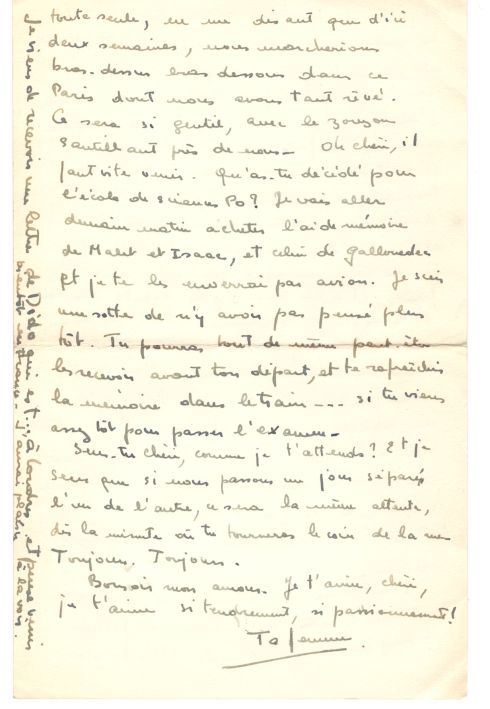 toute seule, en me disant que d'ici
deux semaines, nous marcherions
bras-dessus bras dessous dans ce
Paris dont nous avons tant rêvé.
Ce sera si gentil, avec le zouzou
sautillant près de nous - Oh chéri, il
faut vite venir. Qu'as-tu décidé pour
l'école de sciences Po? Je vais aller
demain matin acheter l'aide mémoire
de Malet et Isaac, et celui de Gallouedec
et je te les enverrai par avion. Je suis
une sotte de n'y avoir pas pensé plus
tôt. Tu pourras tout de même peut-être
les recevoir avant ton départ, et te rafraîchir
la mémoire dans le train --- si tu viens
assez tôt pour passer l'examen -
Sens-tu chéri, comme je t'attends? Et je
sens que si nous passons un jour séparés
l'un de l'autre, ce sera la même attente,
dès la minute où tu tourneras le coin de la rue
Toujours. Toujours.
Bonsoir mon amour. Je t'aime, chéri,
je t'aime si tendrement, si passionnément!
Ta femme.
Je viens de recevoir une lettre de Dido qui est... à Londres et pense venir
bientôt en France - J'aurai plaisir à la voir.